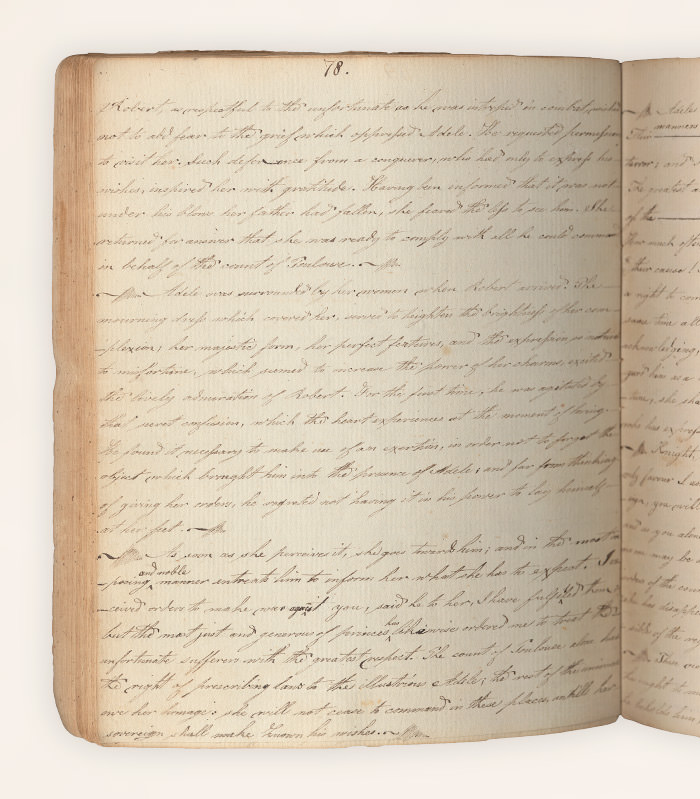 78.
Robert, as respectful to the unfortunate as he was intrepid in combat, wished
not to add fear to the grief which oppressed Adele. He requested permission
to visit her. Such deference from a conqueror, who had only to express his
wishes, inspired her with gratitude. Having been informed that it was not
under his blows her father had fallen, she feared the less to see him. She
returned for answer that she was ready to comply with all he could command
in behalf of the count of Toulouse.
Adele was surrounded by her women when Robert arrived. The
mourning dress which covered her, served to heighten the brightness of her com
-plexion; her majestic form, her perfect features, and the expression so natural
to misfortune, which seemed to increase the power of her charms, excited
the lively admiration of Robert. For the first time, he was agitated by
that secret confusion, which the heart experiences at the moment of loving.
He found it necessary to make use of an exertion, in order not to forget the
object which brought him into the presence of Adele; and far from thinking
of giving her orders, he regretted not having it in his power to lay himself
at her feet.
As soon as she perceives it, she goes towards him; and in the most im
and noble
-posing manner entreats him to inform her what she has to expect. I re
-ceived orders to make war against you, said he to her, I have fulfilled them;
has
but the most just and generous of princes likewise ordered me to treat the
unfortunate sufferers with the greatest respect. The count of Toulouse alone has
the right of prescribing laws to the illustrious Adele; the rest of the
owe her homage; she will not cease to command in these places, untill her
sovereign shall make known his wishes.
Adele
manners
Their
terror; and
The greatest a
of the
How much often
their cause!
a right to con
same time all
acknowledging,
gard him as a
she sh
who has expres
Knight,
my favour I
you will
and as you alon
may be
of the cou
he has
of the